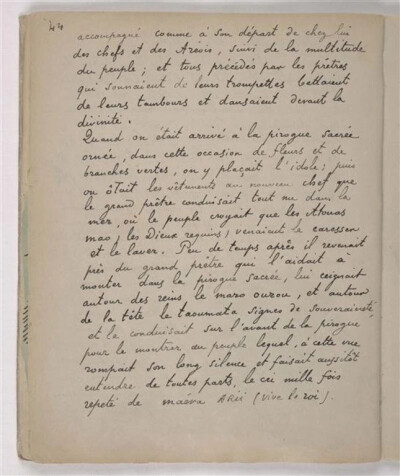 44
accompagné comme à son départ de chez lui
des chefs et des Areois, suivi de la multitude
du peuple ; et tous précédés par les prêtres
qui sonnaient de leurs trompettes battaient
de leurs tambours et dansaient devant la
divinité.
Quand on était arrivé à la pirogue sacrée
ornée, dans cette occasion de fleurs et de
branches vertes, on y plaçait l'idole ; puis
on ôtait les vêtements au nouveau chef que
le grand prêtre conduisait tout nu dans la
mer, où le peuple croyait que les Atouas
mao, les Dieux requins, venaient le caresser
et le laver. Peu de temps après il revenait
près du grand prêtre qui l'aidait à
monter dans la pirogue sacrée, lui ceignait
autour des reins le maro ourou, et autour
de la tête le taoumata signes de souveraineté,
et le conduisait sur l'avant de la pirogue
pour le montrer au peuple lequel, à cette vue
rompait son long silence et faisait aussitôt
entendre de toutes parts, le cri mille fois
repeté de maéva ARII (vive le roi).